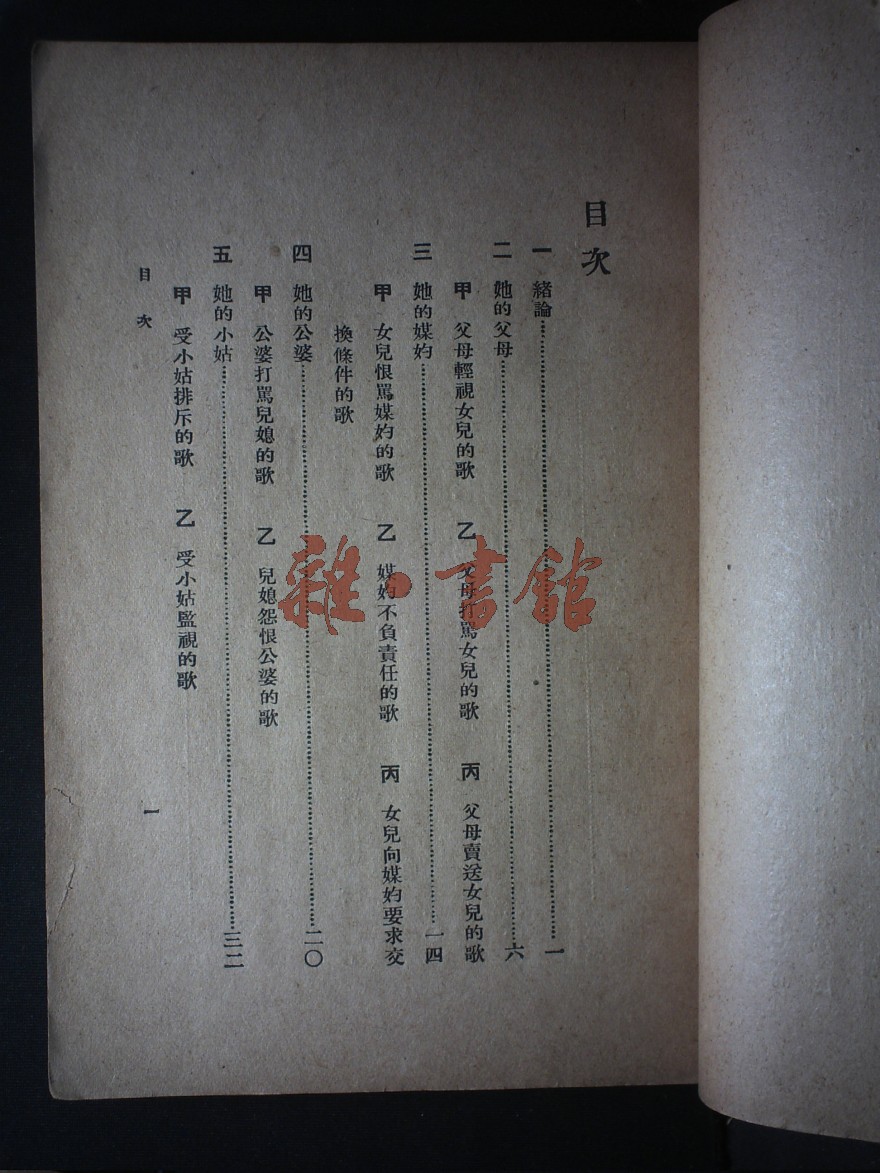 目次
一　緒論……一
二　她的父母……六
甲　父母輕視女兒的歌　乙　父母打罵女兒的歌　丙　父母賣送女兒的歌
三　她的媒妁……一四
甲　女兒恨罵媒妁的歌　乙　媒妁不負責任的歌　丙　女兒向媒妁要求交
換條件的歌
四　她的公婆……二〇
甲　公婆打罵兒媳的歌　乙　兒媳怨恨公婆的歌
五　她的小姑……三二
甲　受小姑排斥的歌　乙　受小姑監視的歌
目次　一
雜·書館